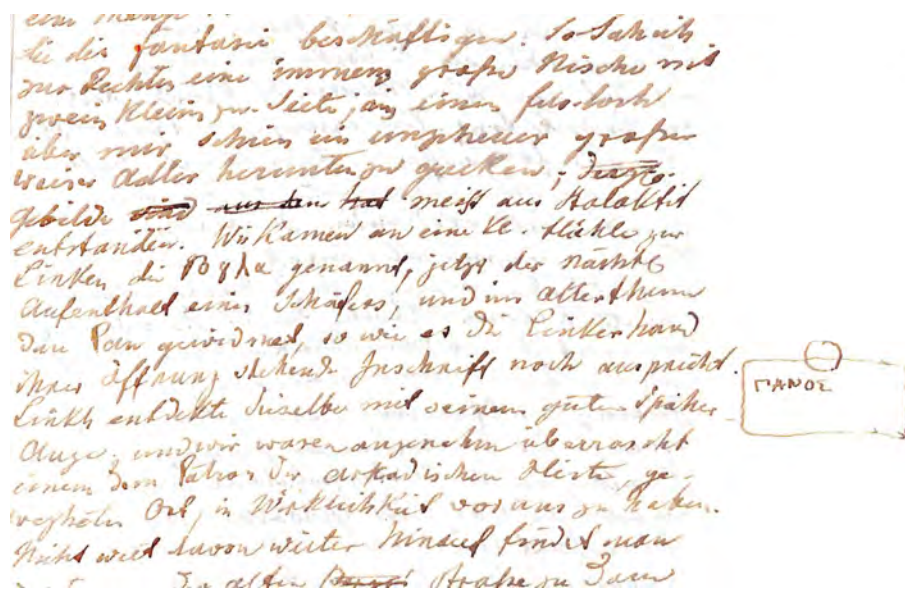 die die fantasie beschäftigen. So sah ich
zur Rechten eine immens große Nische mit
zwein kleinen zur Seite, in einen felsloch
aber mir schien ein ungeheuer großer
weiser Adler herunter zu gucken;
gebilde sind aus dem hat meist aus Stalaktit
entstanden. Wir kamen an eine kl. Höhle zur
Linken die genannt, jetzt der nächtl
Aufenthalt eines Schäfers, und im alterthum
dem Pan gewidmet, so wie es die linkerhand
ihrer öffnung stehende Inschrift noch ausspricht.
ΠΑΝΟΣ
entdekte dieselbe mit seinem guten Späher
Auge, und wir waren angenehm überrascht
einem dem Patron der arkadischen Hirten, ge-
Ort, in Wirklichkeit vor uns zu haben.
Nicht weit davon weiter hinauf findet man
der alten Straße zu dem